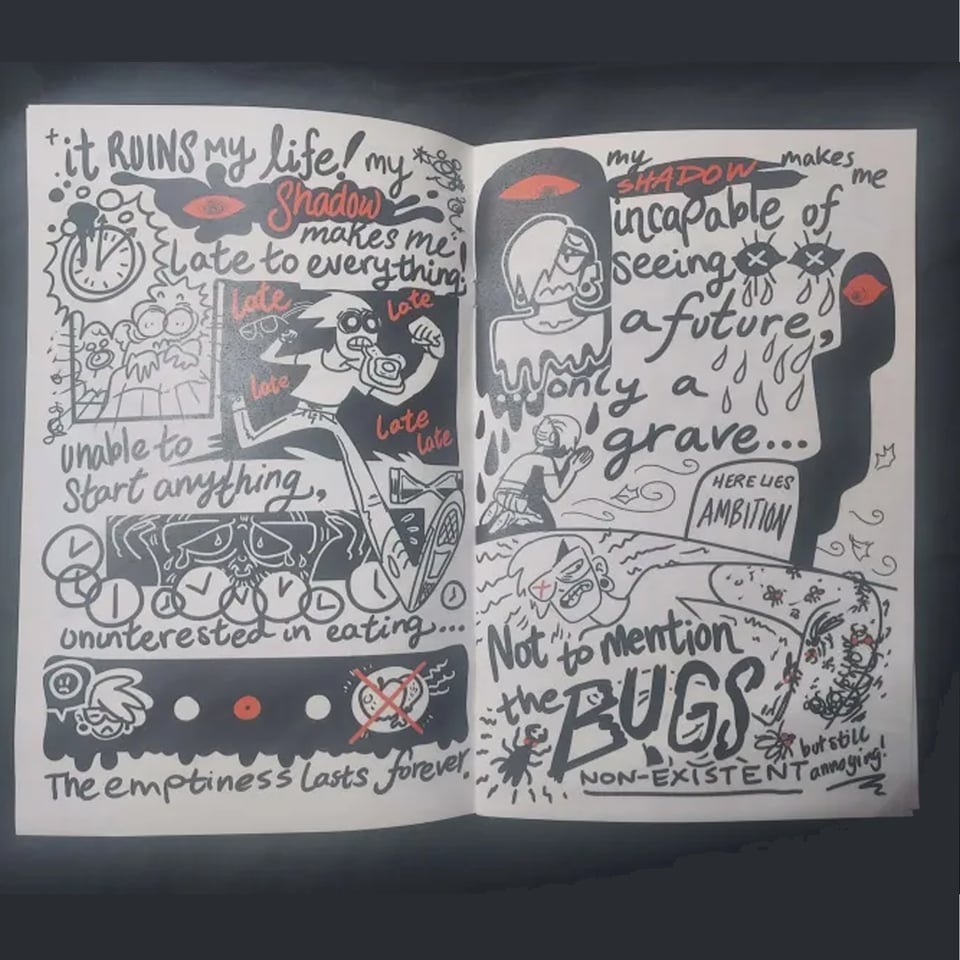 +it RUINS my life! my
Shadow
makes me
late to everything!
late
late
late
late
late
unable to
start anything,
ununterested in eating...
The emptiness lasts forever.
my SHADOW makes me
incapable of
seeing
a future,
only a
grave...
HERE LIES
AMBITION
Not to mention
the BUGS
NON-EXISTENT
but still
annoying!